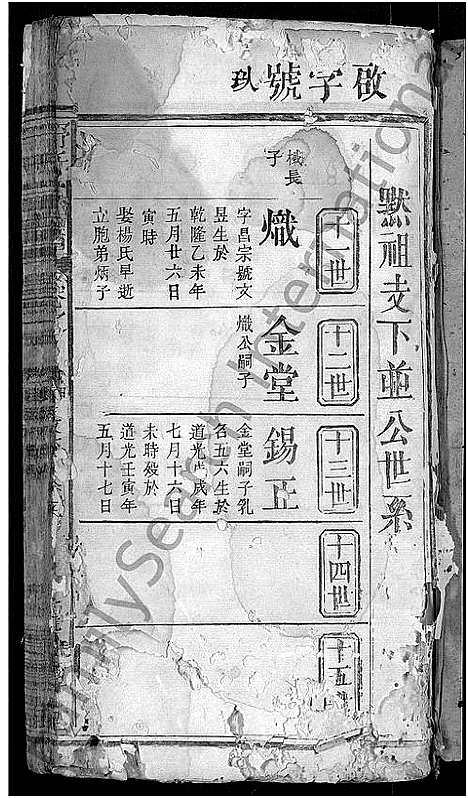 啟字號玖
黙祖支下並公世系
十一世
十二世
十三世
十四世
十五
棫長子
熾
字昌宗號文
昱生於
乾隆乙未年
五月廿六日
寅時
娶楊氏早逝
立胞弟炳子
金堂
熾公嗣子
錫正
金堂嗣子乳
名五六生於
道光戊年
七月十六日
未時殁於
道光壬寅年
五月十七日
FamilySearch International